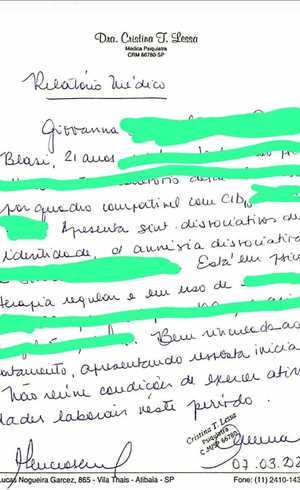 Dra. Cristina T. Lessa
Médica Psiquiatra
CRM 66780-SP
Relatório Médico
Giovanna
Blasi, 21 anos
por quadro compatível com CID
Apresenta sint. dissociativos de
identidade, e amnésia dissociativa
Está em psico
terapia regular e em uso de
Bem vinculada ao
tratamento, apresentando resposta inicial
Não reúne condições de exercer ativi
dades laborais neste período.
Cristina T. Lessa
Psiquiatra
07.03.202
Lucas Nogueira Garcez, 865 - Vila Thais - Atibaia - SP
Fone: (11) 2410-143